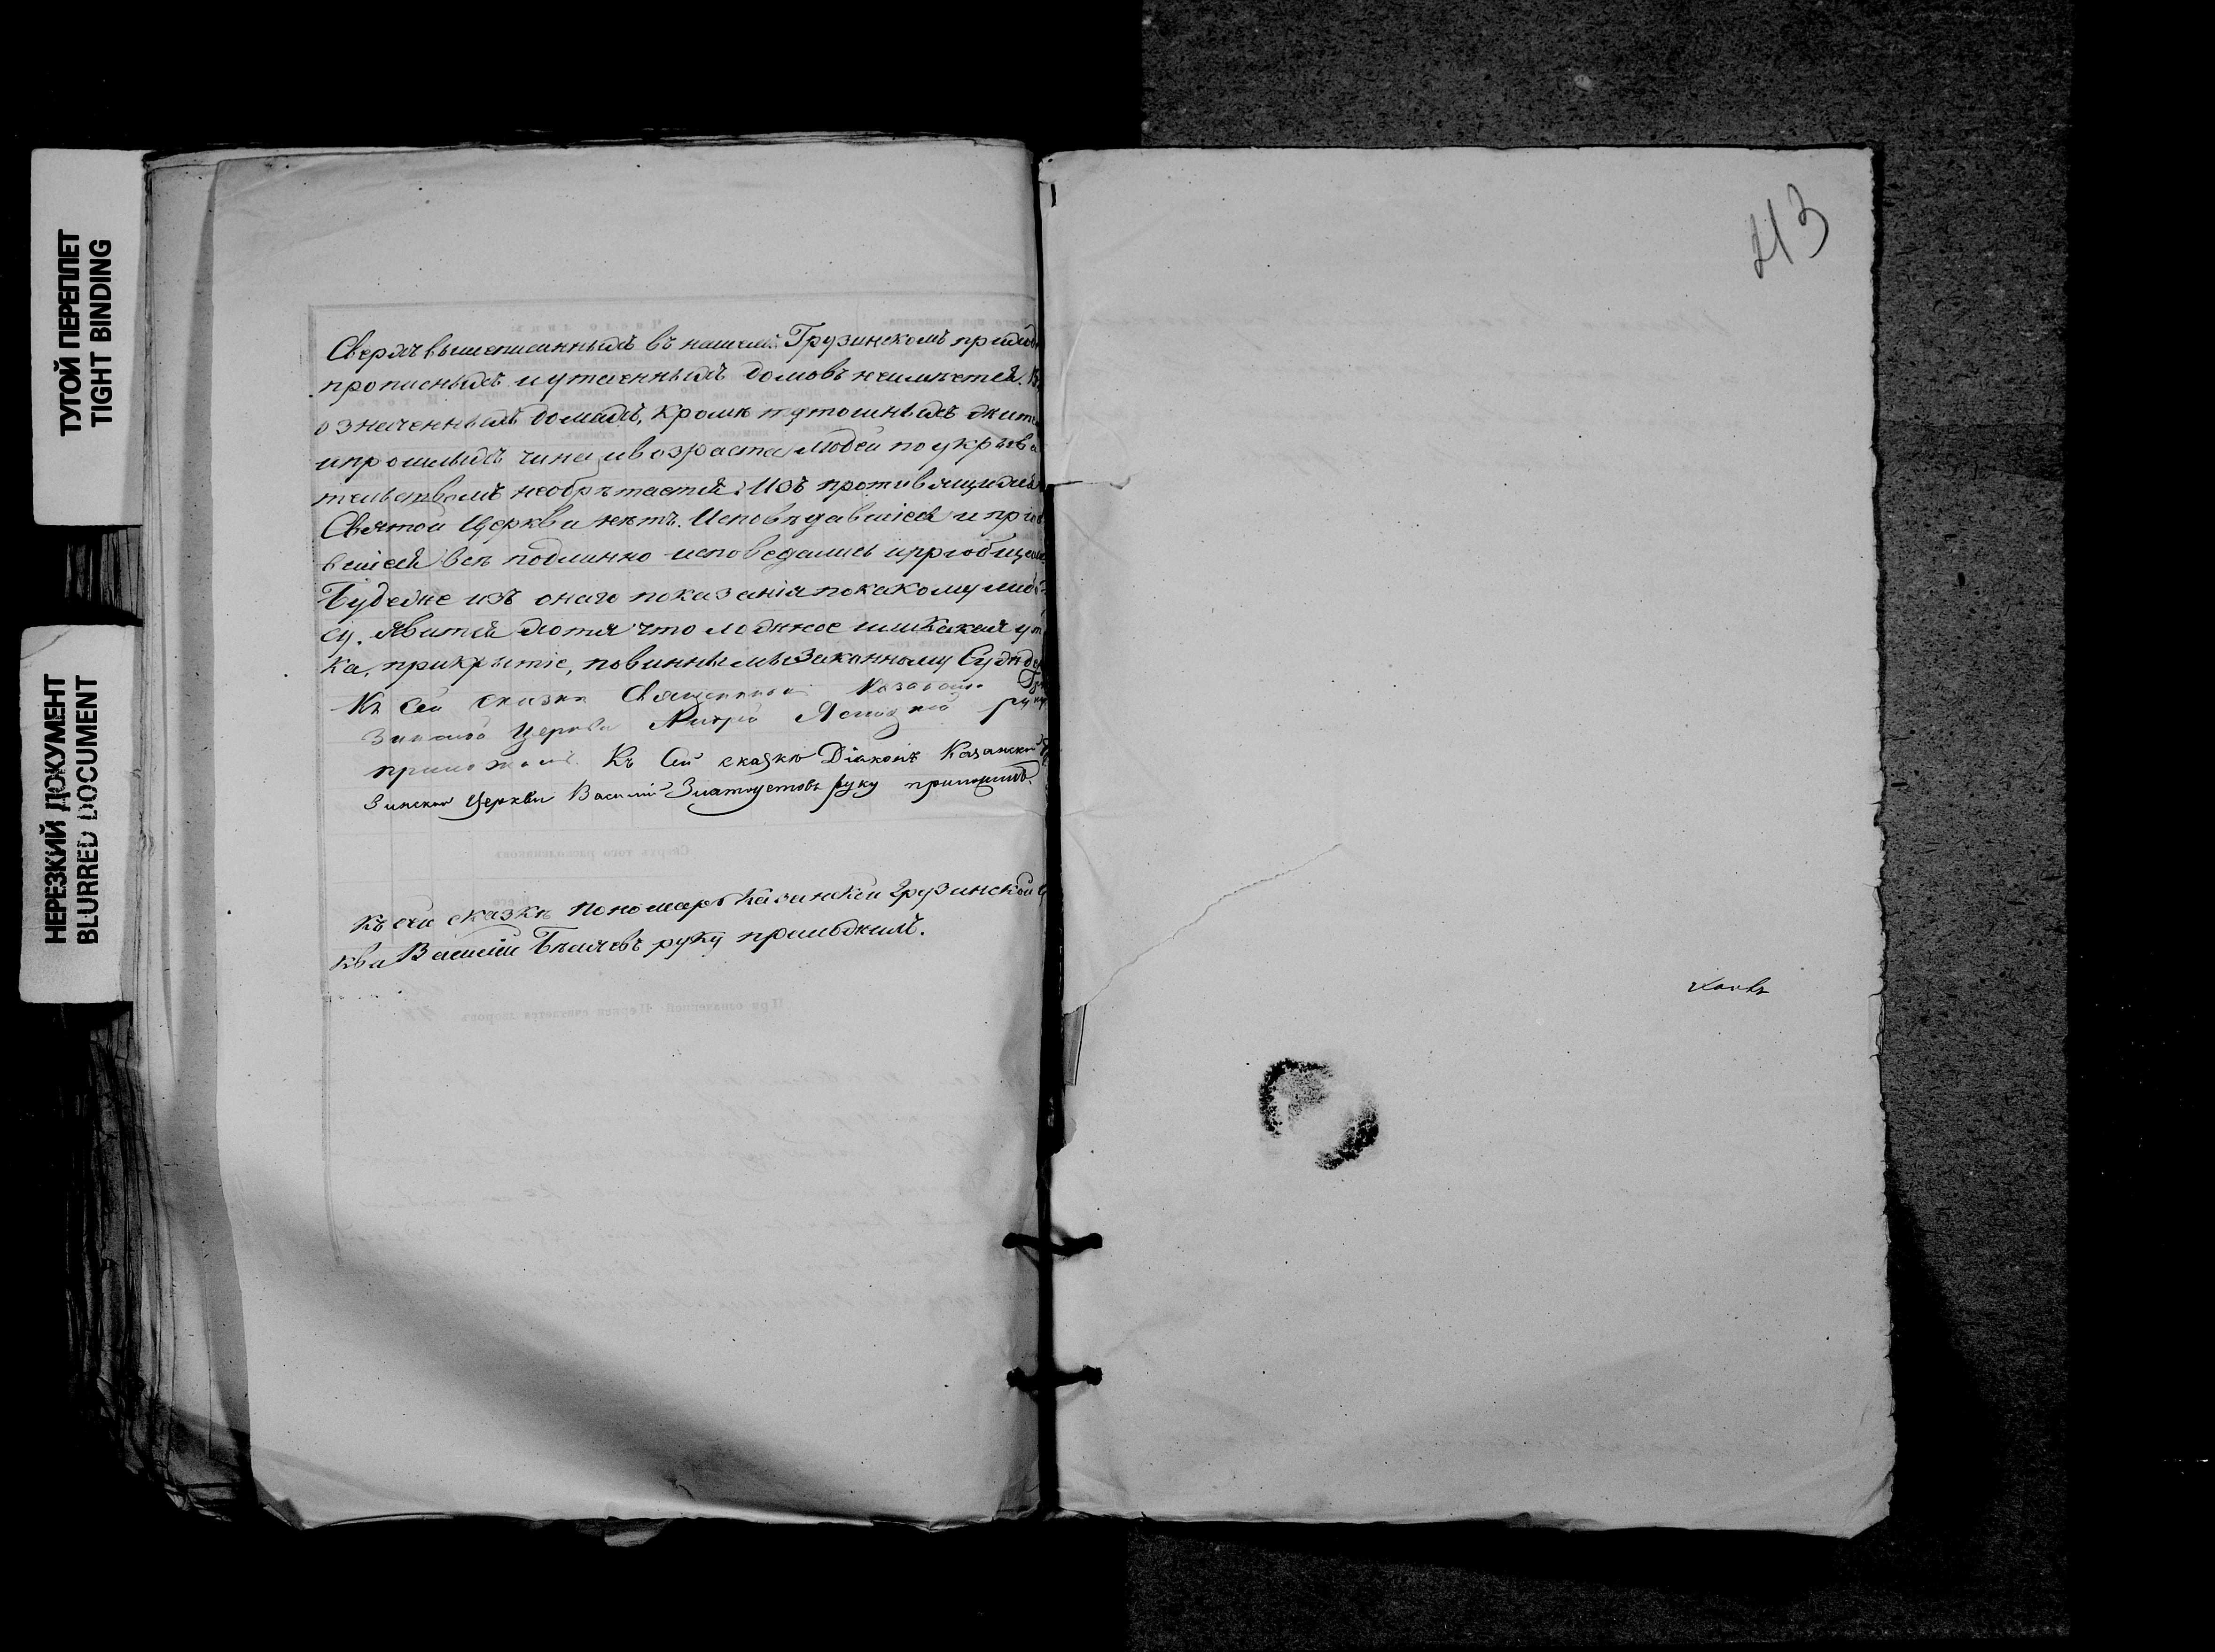 ТУГОЙ ПЕРЕПЛЕТ
TIGHT BINDING
НЕРЕЗКИЙ ДОКУМЕНТ
BLURRED DOCUMENT
413
Сверхъ вышеписанныхъ въ нашемъ Грузинскомъ приход
прописныхъ и утаенныхъ домовъ неимѣется. В
означенныхъ домахъ, кромѣ тутошныхъ жите
ипрошлыхъ чина ивозраста людей по укрыва
тельствомъ необрѣтается; Изъ противящихся
Святой Церкви нѣтъ. Исповѣдавшіеся и пріоб
вшіеся всѣ подлинно исповедались ипріобщал
Будеже изъ онаго показанія покакому либо
су. Явится хотя что ложное или Какая ут
Ка, прикрытіе, повинны мы Законному Суд
Къ сей сказкѣ Священникъ Казанско Гру
зинской Церкви Андрей руку
приложилъ. Къ Сей сказкѣ Діаконъ Казанской
Зинской Церкви Василій Златоустовъ руку приложилъ.
Сверхъ того раскольниковъ
Къ сей сказкѣ Пономарь Казанской Грузинской Ц
кви Василій Бѣляевъ руку приложилъ.
При означенной Церкви считается дворовъ